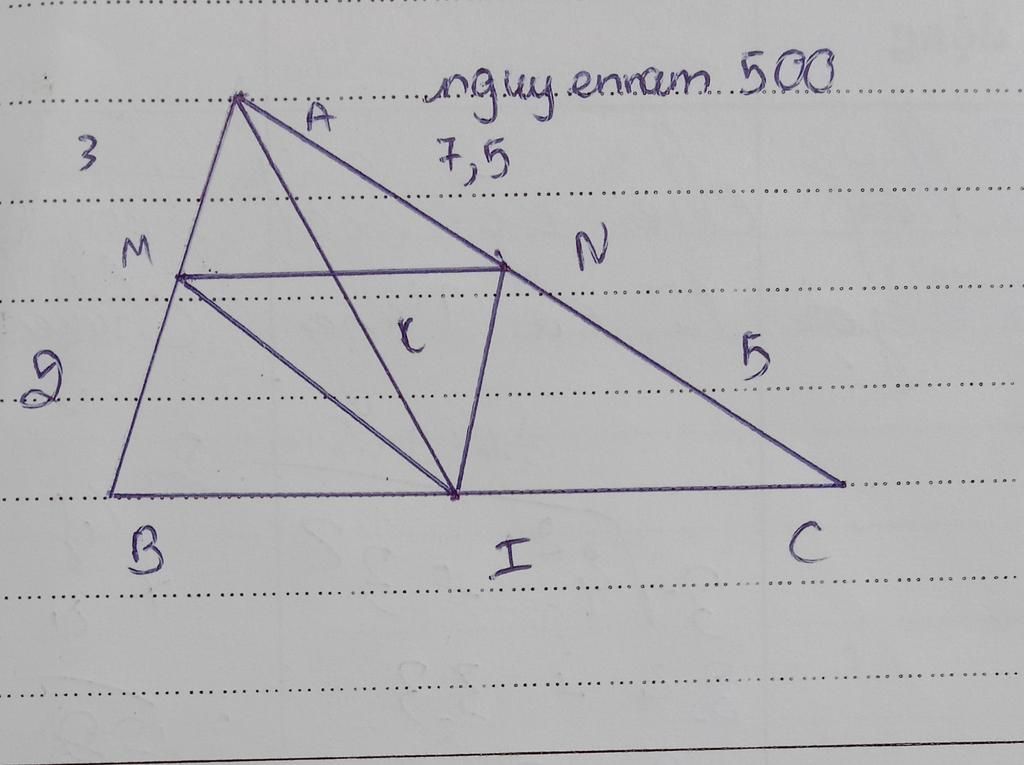 nguyennam 500
A
3
7,5
M
N
K
2
5
B
I
C